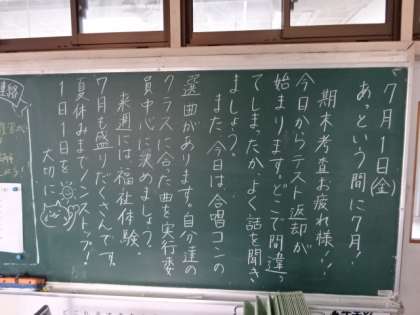 7月1日(金)
あっという間に7月!
期末考査お疲れ様!!
今日からテスト返却が
始まります。どこで間違っ
てしまったか、よく話を聞き
ましょう。
また、今日は、合唱コンの
選曲があります。自分達の
クラスに合った曲を実行委
員中心に決めましょう。
来週には、福祉体験。
7月も盛りだくさんです。
夏休みまでノンストップ!
1日1日を
大切に
連絡